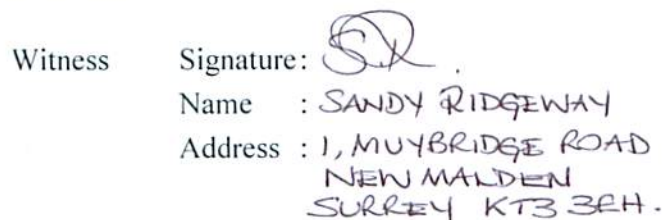 Witness Signature:
Name : SANDY RIDGEWAY
Address : 1, MUYBRIDGE ROAD
NEW MALDEN
SURREY KT3 3EH.